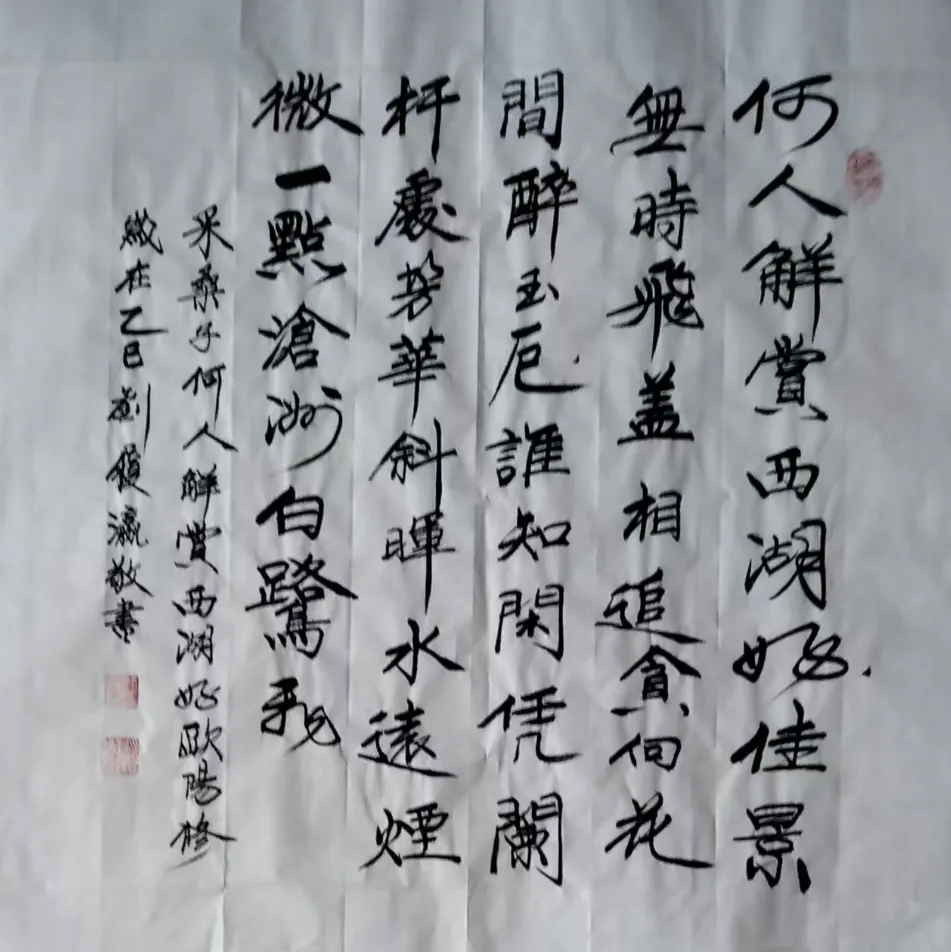 何人解賞西湖好佳景
無時飛盖相追貪向花
間醉玉卮誰知閑凭闌
杆處芳華斜暉水遠煙
微一點滄洲白鷺飛
采桑子何人解賞西湖好歐陽修
歲在乙巳劉瀛敬書